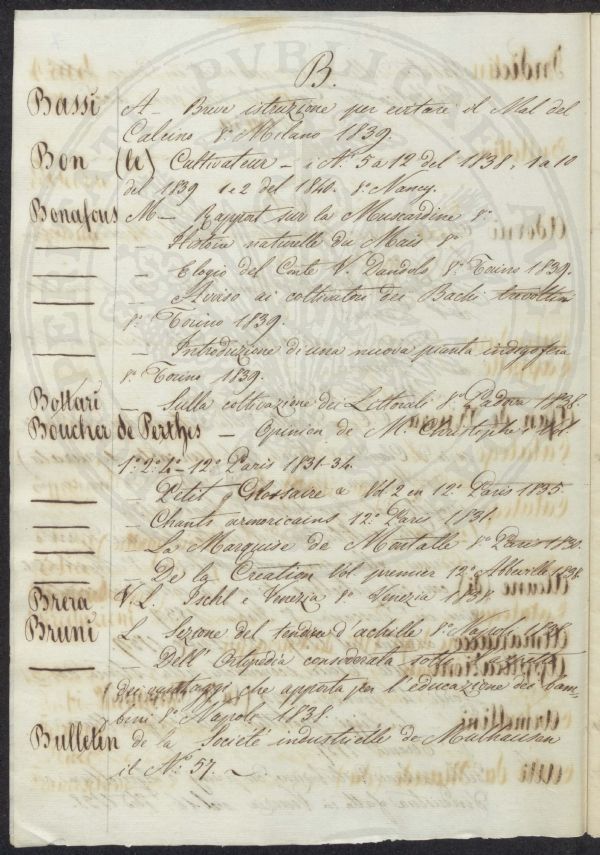 B.
Bassi A – Breve istruzione per evitare il Mal del
Calcino 8.° Milano 1839.
Bon (le) Cultivateur – i N.i 5 a 12 del 1838, 1 a 10
del 1839 1 e 2 del 1840. 8.° Nancy.
Bonafous M – Rapport sur la Muscardine 8.°
— – Histoire naturelle du Mais 8.°
— – Elogio del Conte V. Dandolo 8.° Torino 1839.
— – Avviso ai coltivatori dei Bachi
8.° Torino 1839.
— – Introduzione di una nuova pianta indigofera
8.° Torino 1839.
Bottari – Sulla coltivazione dei Littorali 8.° Padova 1838.
Boucher de Perthes – Opinion de M. Christophe Vol
1.° 2.° 4.° – 12.° Paris 1831-34.
— – Petit Glossaire Vol 2 en 12.° Paris 1835.
— – Chants armoricains 12.° Paris 1831.
— – La Marquise de 8.° Paris
— – De la Création Vol. premier 12.° Abbeville 1838.
Brera V. L. Ischl e Venezia 8.° Venezia 1838.
Bruni L Sezione del tendine d'achille 8.° Napoli 1838.
— – Dell' Ortopedia considerata sotto
dei vantaggi che apporta per l'educazione dei bam-
bini 8.° Napoli 1838.
Bulletin de la Société industrielle de Mulhausen
il N.° 57. –